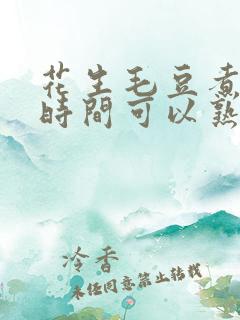 花生毛豆煮
時間可以熟
冷香
未经同意禁止转载